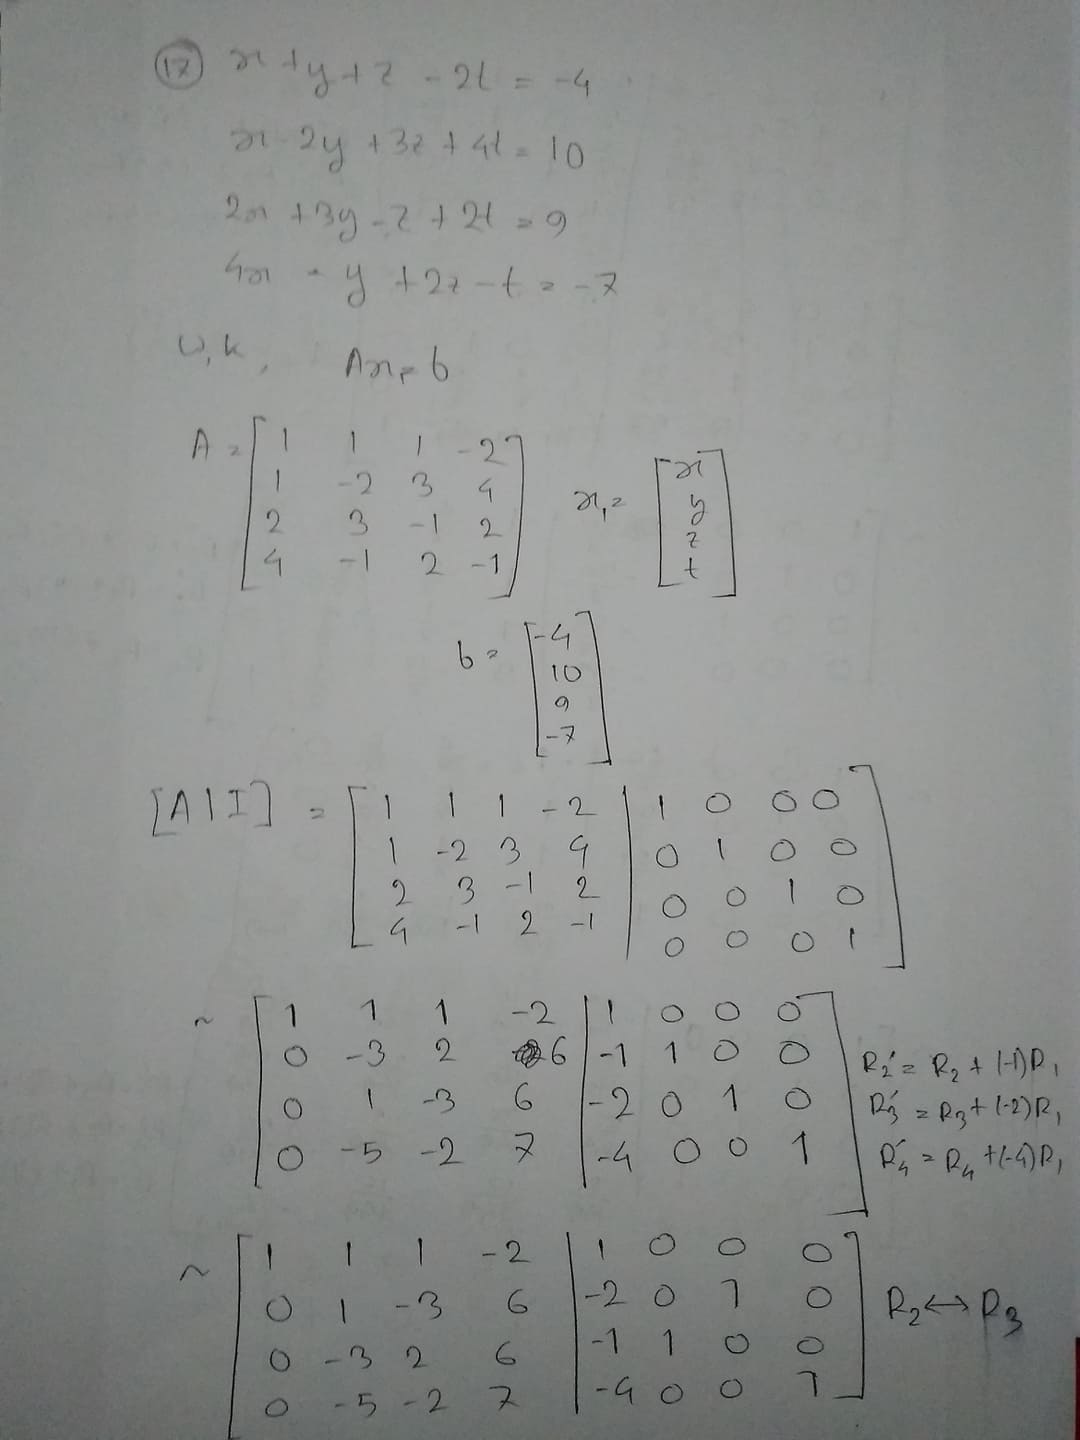 (17) x + y + z - 2t = -4
x - 2y + 3z + 4t = 10
2x + 3y - z + 2t = 9
4x - y + 2z - t = -7
W.k, Ax = b
A = [ 1 1 1 -2
1 -2 3 4
2 3 -1 2
4 -1 2 -1 ]
x, = [ x
y
z
t ]
b = [ -4
10
9
-7 ]
[A|I] = [ 1 1 1 -2 | 1 0 0 0
1 -2 3 4 | 0 1 0 0
2 3 -1 2 | 0 0 1 0
4 -1 2 -1 | 0 0 0 1 ]
~ [ 1 1 1 -2 | 1 0 0 0
0 -3 2 6 | -1 1 0 0
0 1 -3 6 | -2 0 1 0
0 -5 -2 7 | -4 0 0 1 ]
R2' = R2 + (-1)R1
R3' = R3 + (-2)R1
R4' = R4 + (-4)R1
~ [ 1 1 1 -2 | 1 0 0 0
0 1 -3 6 | -2 0 1 0
0 -3 2 6 | -1 1 0 0
0 -5 -2 7 | -4 0 0 1 ]
R2 ↔ R3